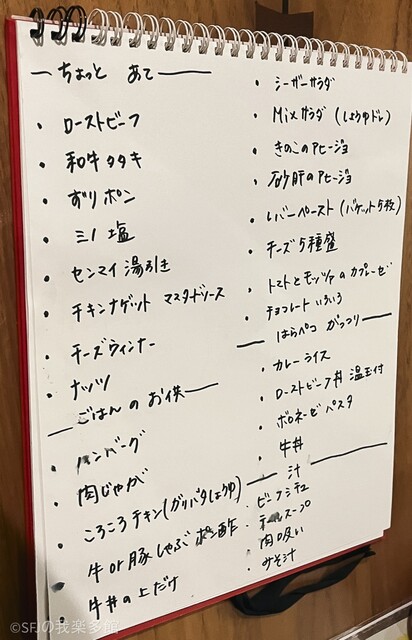 ちょっと あて
・ ローストビーフ
・ 和牛タタキ
・ ずりポン
・ ミノ塩
・ センマイ湯引き
・ チキンナゲット マスタードソース
・ チーズウィンナー
・ ナッツ
ごはんのお供
・ ハンバーグ
・ 肉じゃが
・ ころころチキン(ガリバタしょうゆ)
・ 牛or豚しゃぶ ポン酢
・ 牛丼の上だけ
・ シーザーサラダ
・ Mixサラダ (しょうゆドレ)
・ きのこのアヒージョ
・ 砂肝のアヒージョ
・ レバーペースト(バケット5枚)
・ チーズ5種盛
・ トマトとモッツァのカプレーゼ
・ チョコレートいろいろ
はらペコ がっつり
・ カレーライス
・ ローストビーフ丼 温玉付
・ ボロネーゼパスタ
・ 牛丼
汁
・ ビーフシチュ
・ スープ
・ 肉吸い
・ みそ汁
©SFJの我楽多館